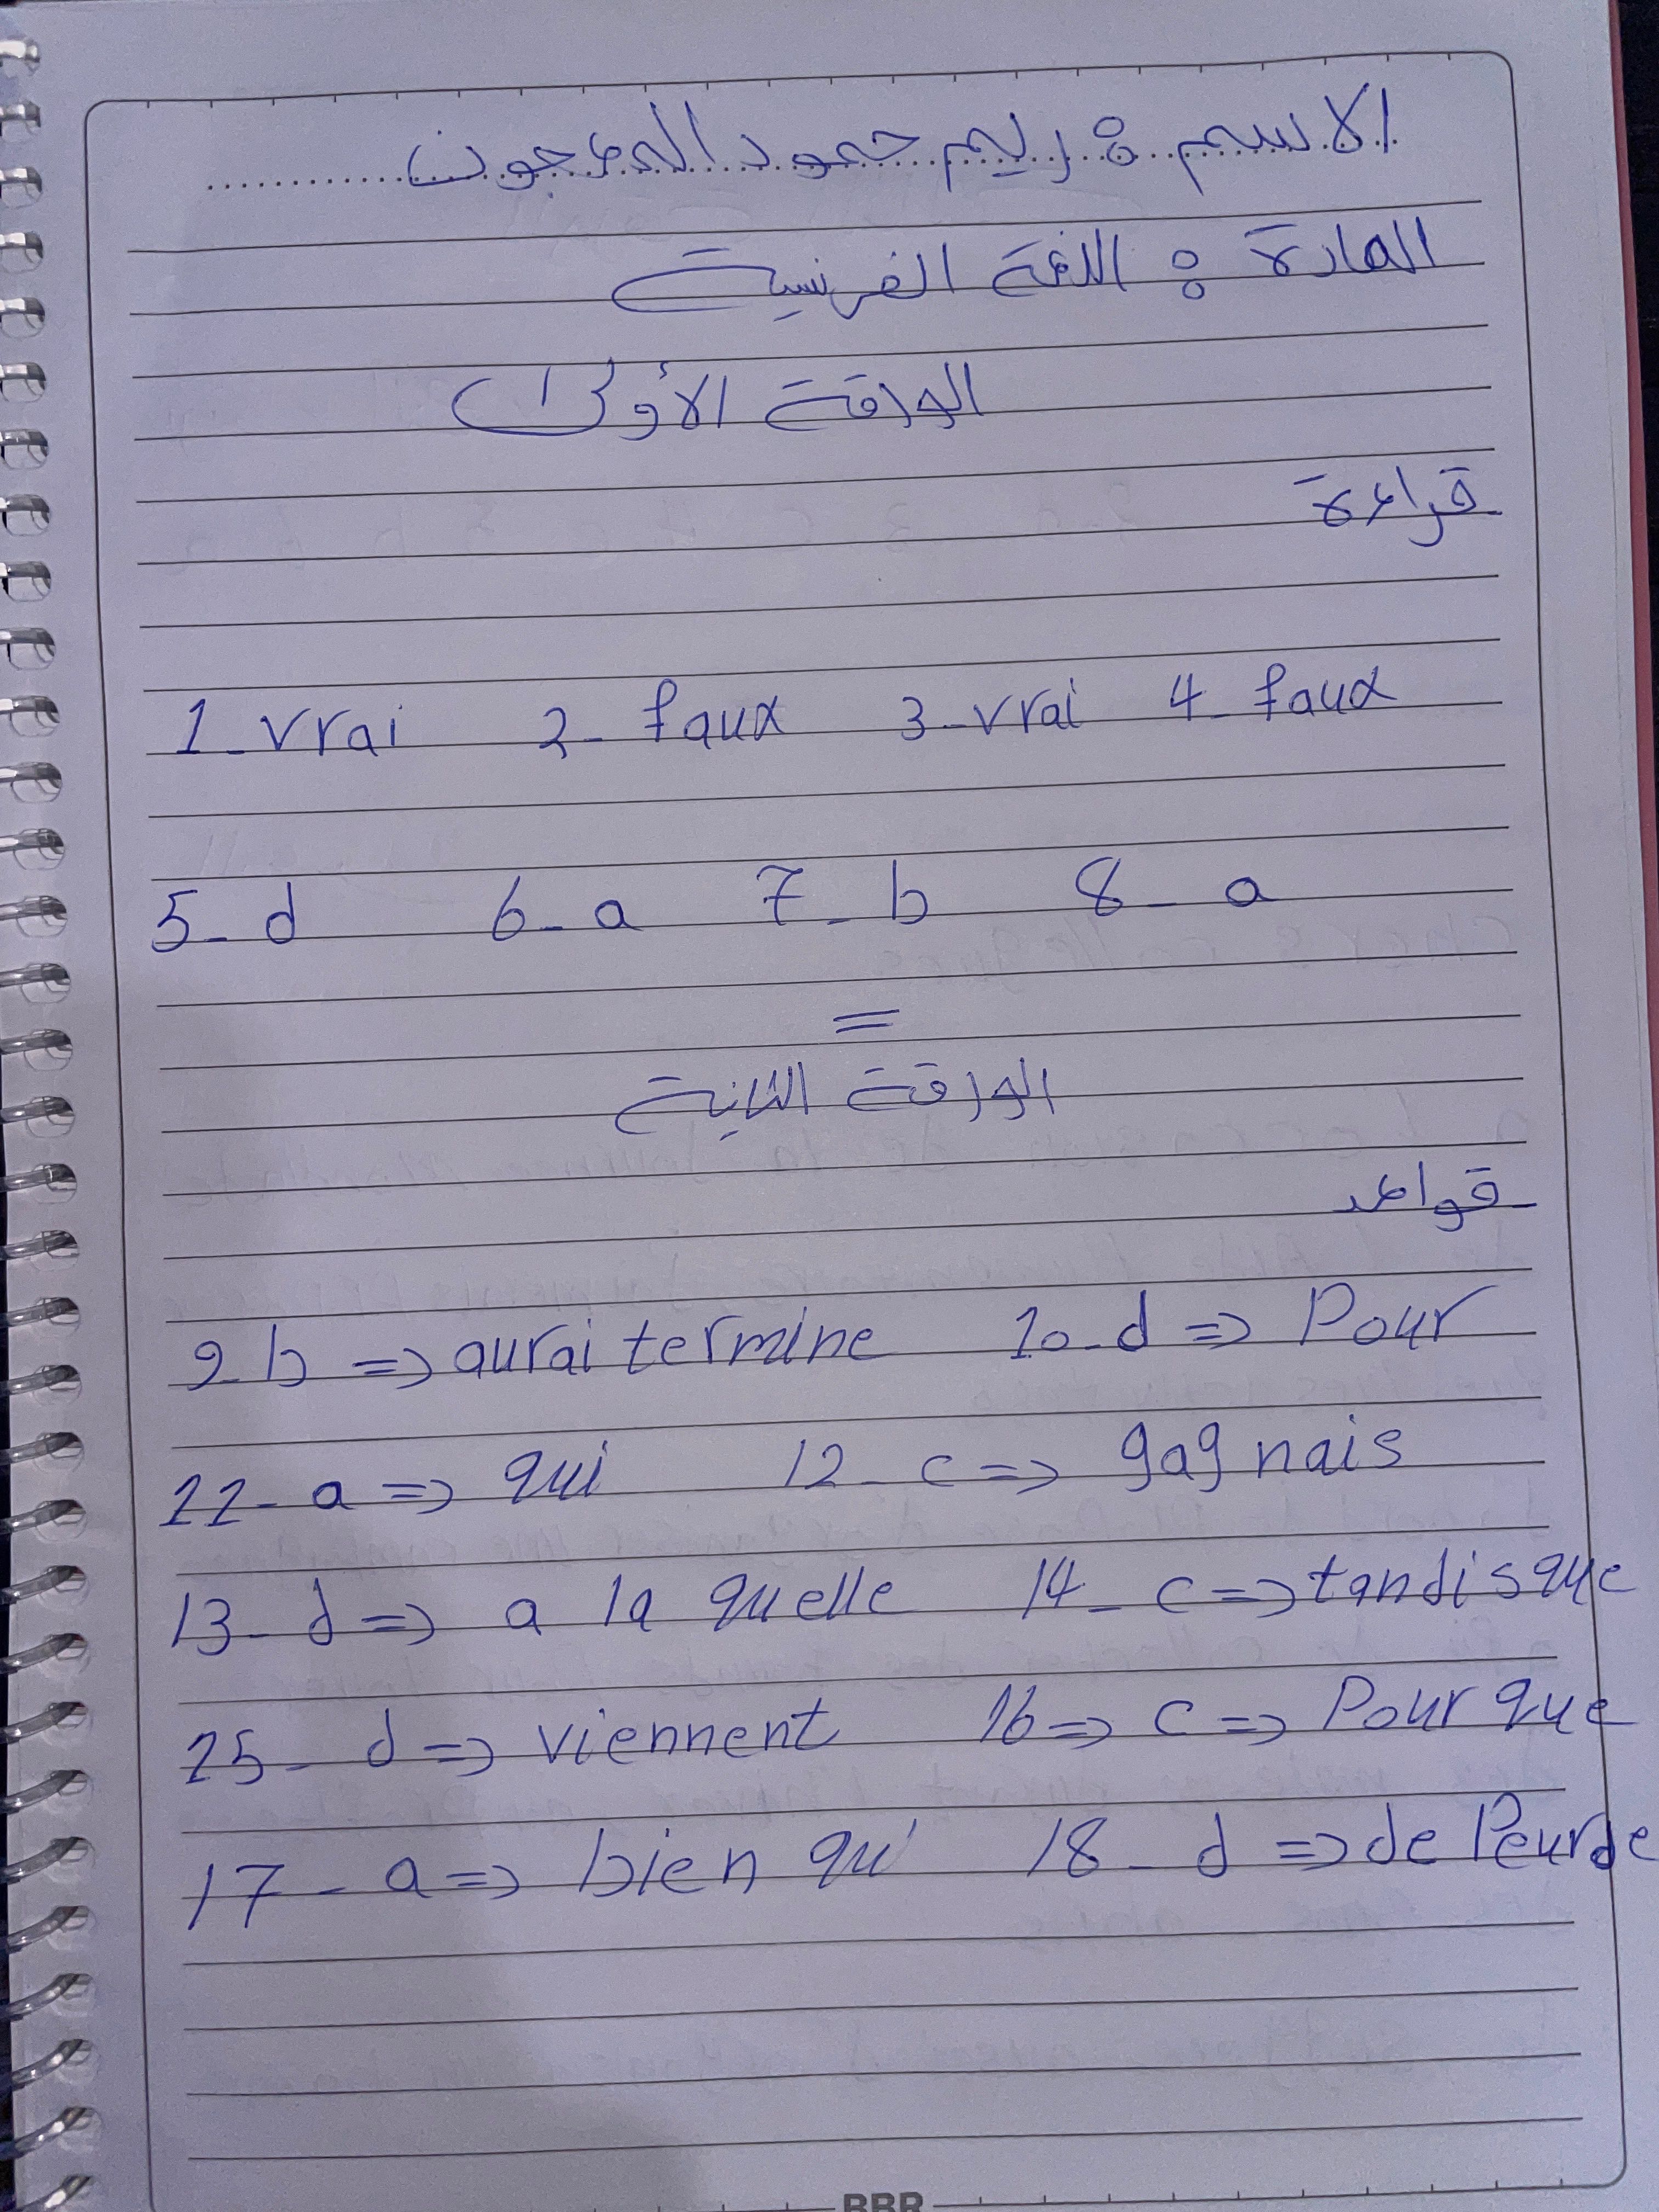 الاسم : ريم حمود المرجون
المادة : اللغة الفرنسية
الورقة الأولى
قراءة
1_vrai 2_ faux 3_vrai 4_ faux
5_d 6_a 7_b 8_a
=
الورقة الثانية
قواعد
9_b => aurai termine 10_d => Pour
11_ a => qui 12_ c => gagnais
13_ d => a la quelle 14_ c => tandis que
15_ d => viennent 16 => c => Pour que
17_ a => bien qu' 18_ d => de Peur de
BBR